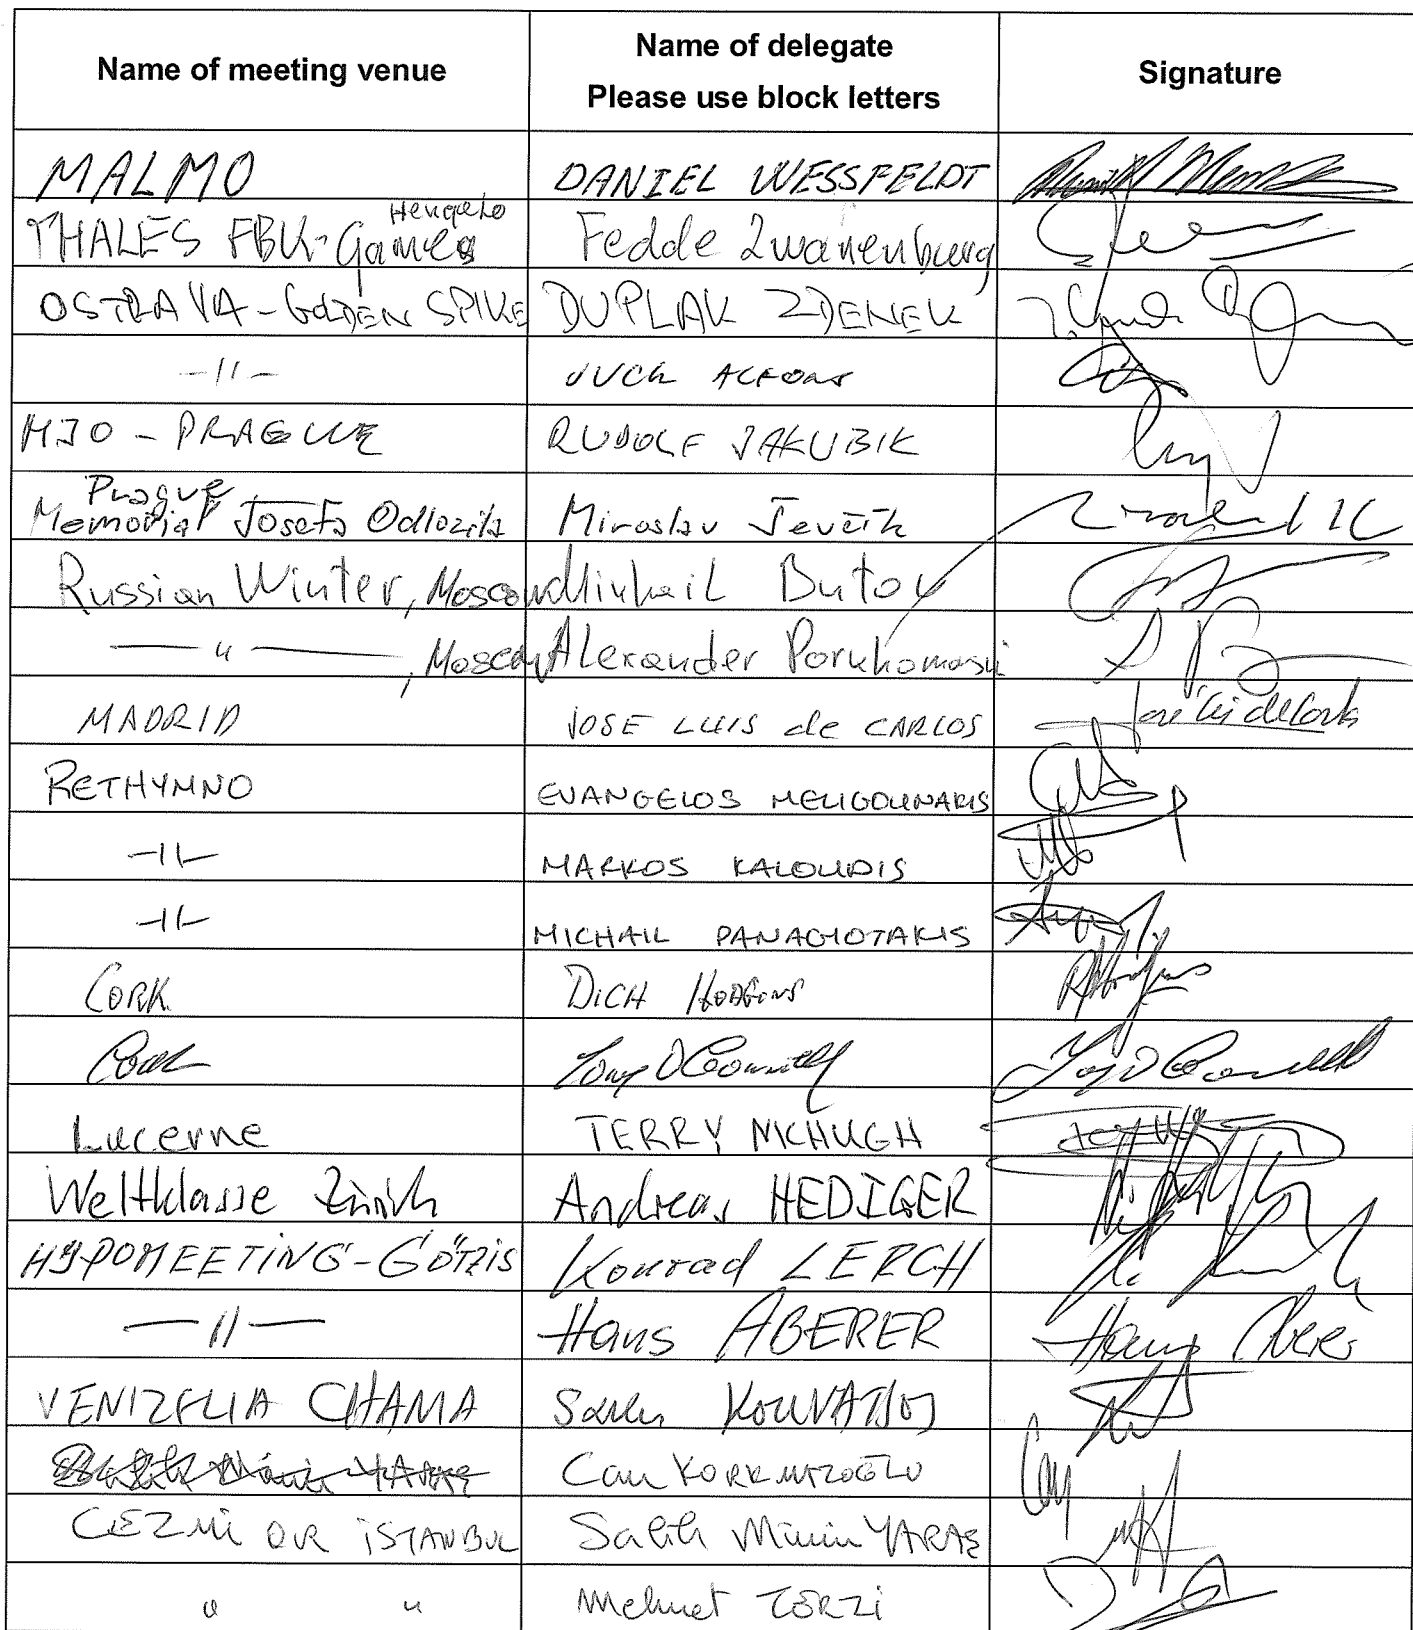 Name of meeting venue
Name of delegate
Please use block letters
Signature
MALMO DANIEL WESSFELDT
Hengelo
THALES FBK-Games Fedde Zwanenburg
OSTRAVA-GOLDEN SPIKE DUPLAK ZDENEK
-11- JUCK ALFONS
MJO - PRAGUE RUDOLF JAKUBIK
Prague
Memorial Josefa Odlozila Miroslav Ševčík
Russian Winter, Moscow Mikhail Butov
— " —, Moscow Alexander
MADRID JOSE LUIS de CARLOS José Luis de Carlos
RETHYMNO EVANGELOS MELIGOUNAKIS
-11- MARKOS KALOUDIS
-11- MICHAIL PANAGIOTAKIS
CORK DICK HODGINS
Cork Tony O'Connell Tony O'Connell
Lucerne TERRY MCHUGH
Weltklasse Zürich Andreas HEDIGER
HYPOMEETING-GÖTZIS Konrad LERCH
— 11 — Hans ABERER Hans Aberer
VENIZELIA CHANIA
Can KORKMAZOĞLU
CEZMİ OR İSTANBUL Salih Münir YARAŞ
" " Mehmet TERZİ